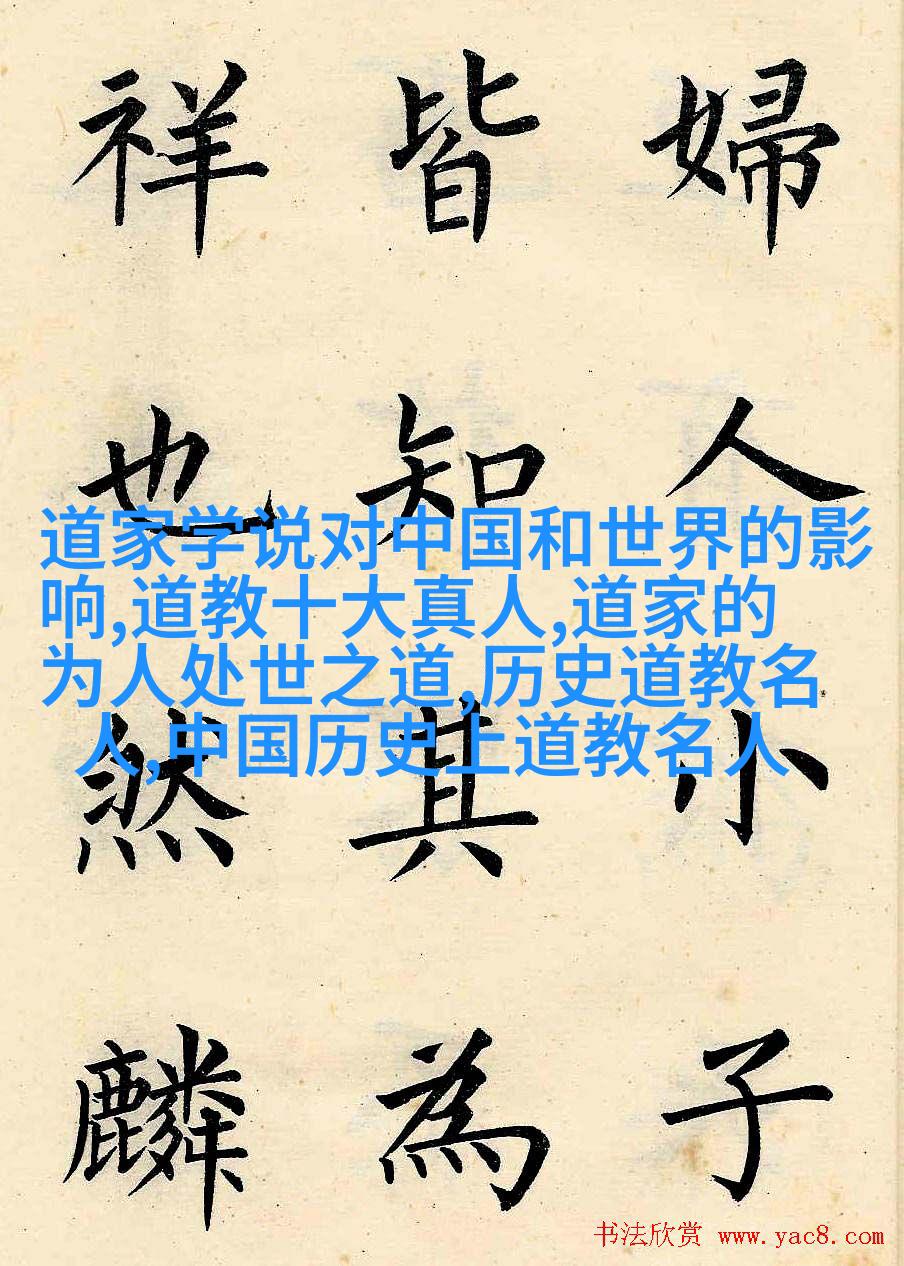 婦人小子
皆知其為
祥也然麟
道家学说对中国和世界的影
响,道教十大真人,道家的
为人处世之道,历史道教名
人,中国历史上道教名人
书法欣赏 www.yac8.com